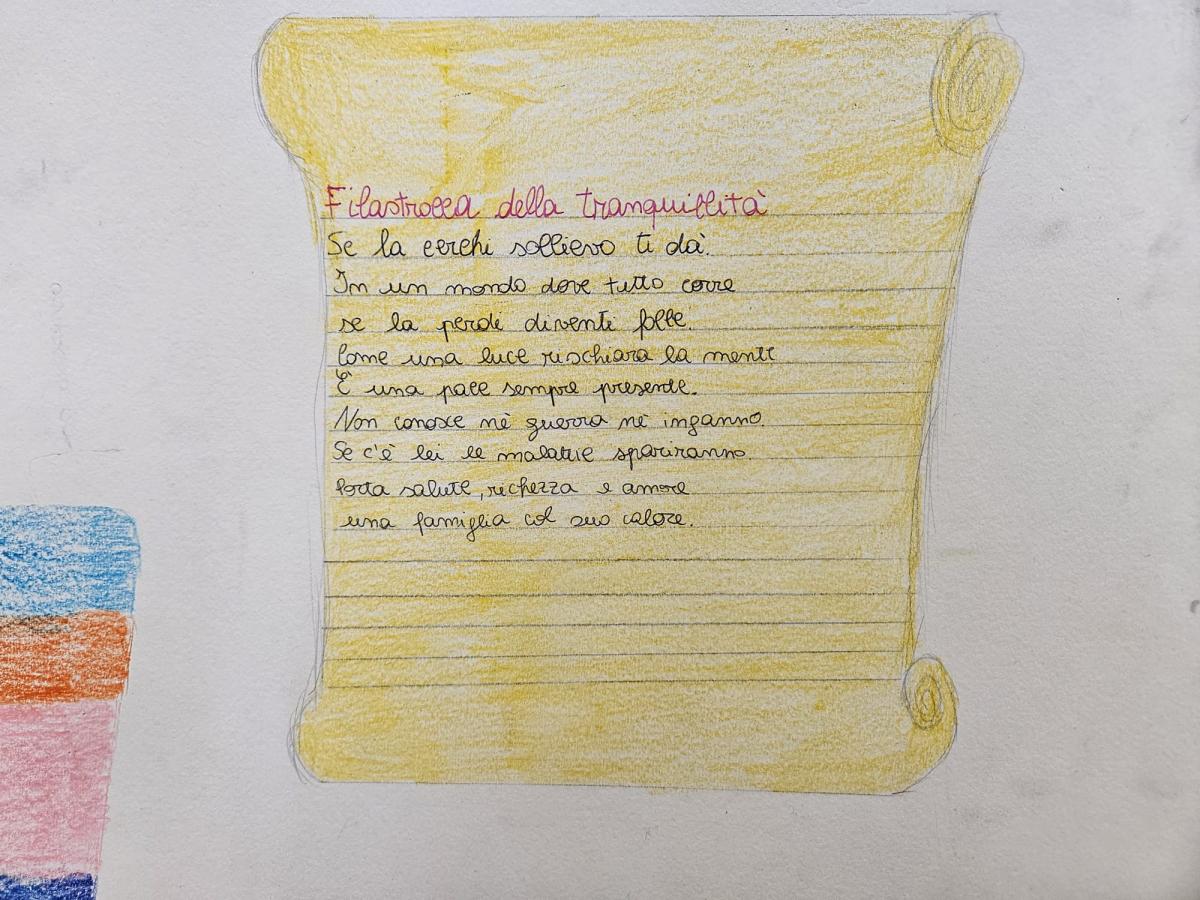 Filastrocca della tranquillità
Se la cerchi sollievo ti dà.
In un mondo dove tutto corre
se la perdi diventi folle.
Come una luce rischiara la mente
È una pace sempre presente.
Non conosce nè guerra nè inganno.
Se c'è lei le malattie spariranno.
Porta salute, richezza e amore
una famiglia col suo calore.